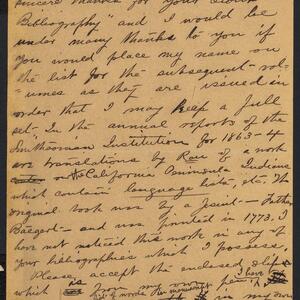 sincere thanks for your
Bibliography" and I would be
under many thanks to you if
you would place my name on
the list for the subsequent vol-
umes as they are issued in
order that I may keep a full
set. In the annual reports of the
Smithsonian Institution for 1863-4
are translations by Rau of a work
on California Peninsula Indians
which contain language lists, etc. The
original book was by a Jesuit - Father
Baegert - and was printed in 1773. I
have not noticed this work in any of
your bibliographies which I possess.
Please accept the enclosed
which is from my own pen, I have
words manuscript